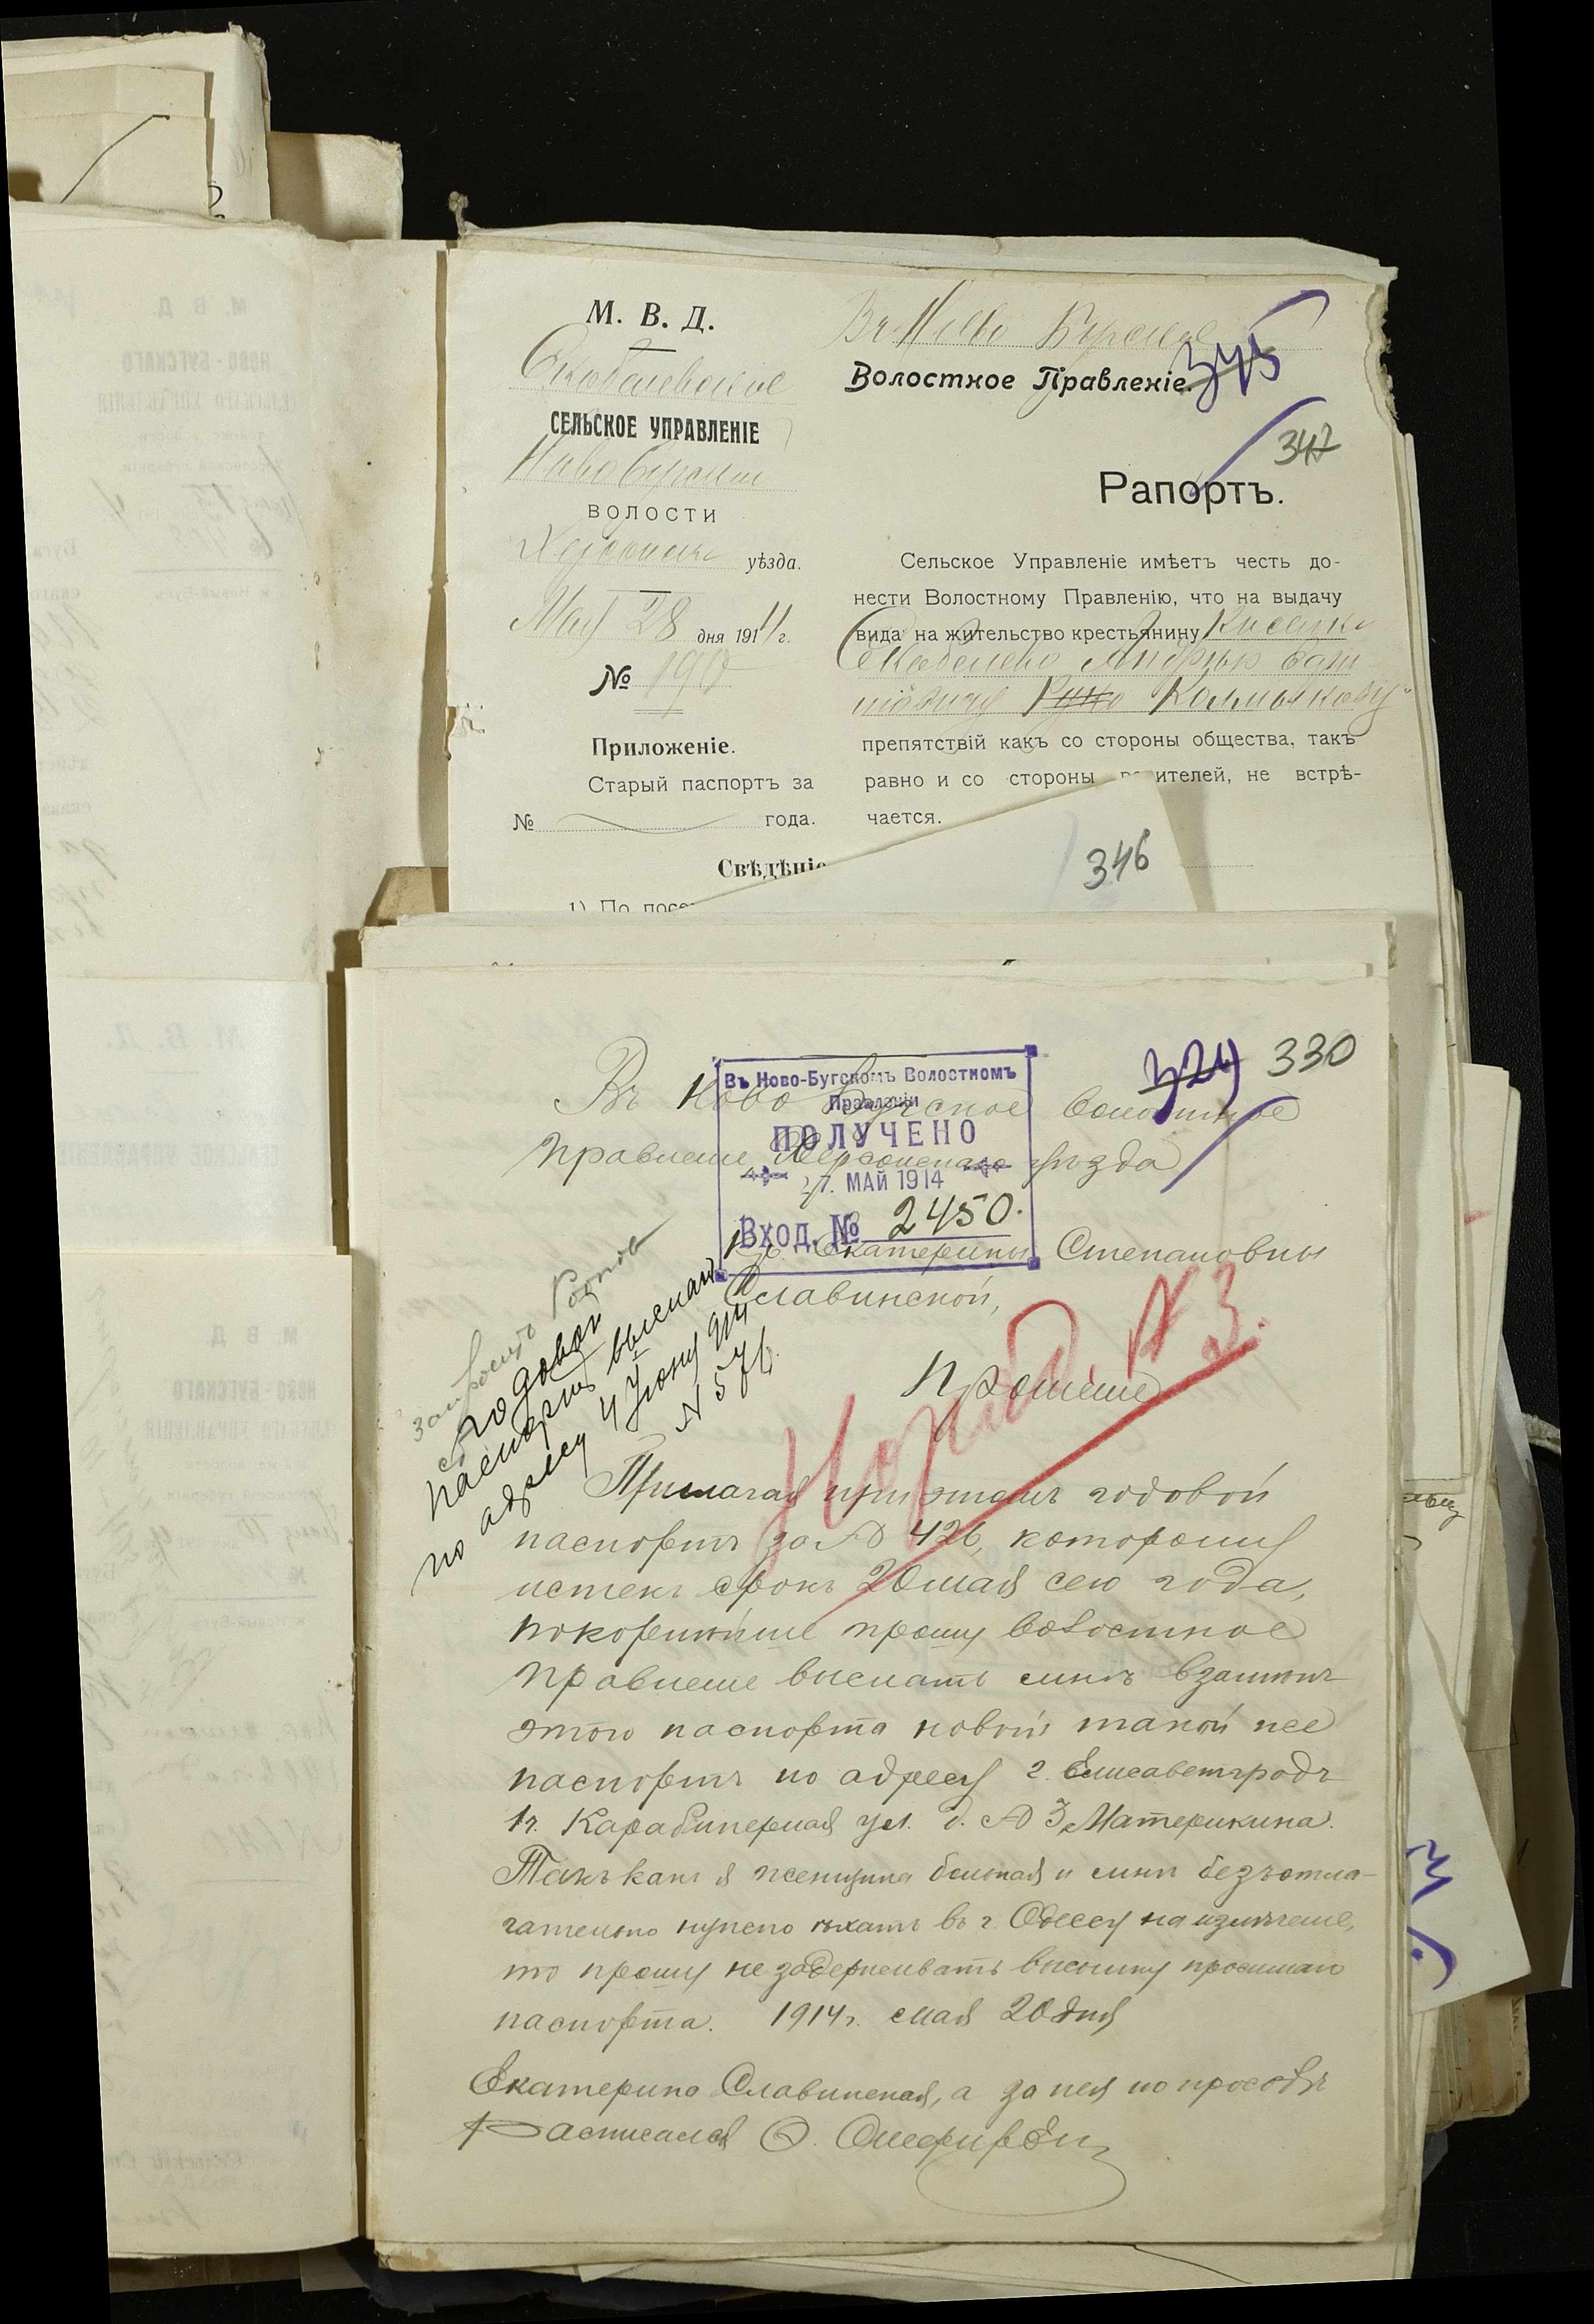 М. В. Д.
Скобелевское
СЕЛЬСКОЕ УПРАВЛЕНІЕ
Ново Бугской
ВОЛОСТИ
Херсонск. уѣзда.
Мая 28 дня 1914 г.
№
Приложеніе.
Старый паспортъ за
№ года.
Въ Ново Бугское
Волостное Правленіе.
345
347
Рапортъ.
Сельское Управленіе имѣетъ честь до-
нести Волостному Правленію, что на выдачу
вида на жительство крестьянину
Скобелево
Калмыкову
препятствій какъ со стороны общества, такъ
равно и со стороны ителей, не встрѣ-
чается.
Свѣдѣніе
1) По посе
346
324 330
Въ Ново Бугское Волостное
правленіе Херсонскаго уѣзда
Въ Ново-Бугскомъ Волостномъ
Правленіи
ПОЛУЧЕНО
27. МАЙ 1914
Вход. № 2450.
Кр. Екатерины Степановны
Славинской,
Прошеніе
№ 3.
годовой
паспортъ высланъ
по адресу 4 Іюня 914
№ 576.
Прилагая при этомъ годовой
паспортъ за № 426, которому
истекъ срокъ 20 мая сего года,
покорнѣйше прошу волостное
правленіе выслать мнѣ взамѣнъ
этого паспорта новый такой же
паспортъ по адресу г. Елисаветградъ
1я. Карабинерная ул. д. № 3, Материкина.
Такъ какъ я женщина больная и мнѣ безъотла-
гательно нужно ѣхать въ г. Одессу на излѣченіе,
то прошу не задерживать высылку просимаго
паспорта. 1914 г. мая 20 дня
Екатерина Славинская, а за нея по просьбѣ
Расписался